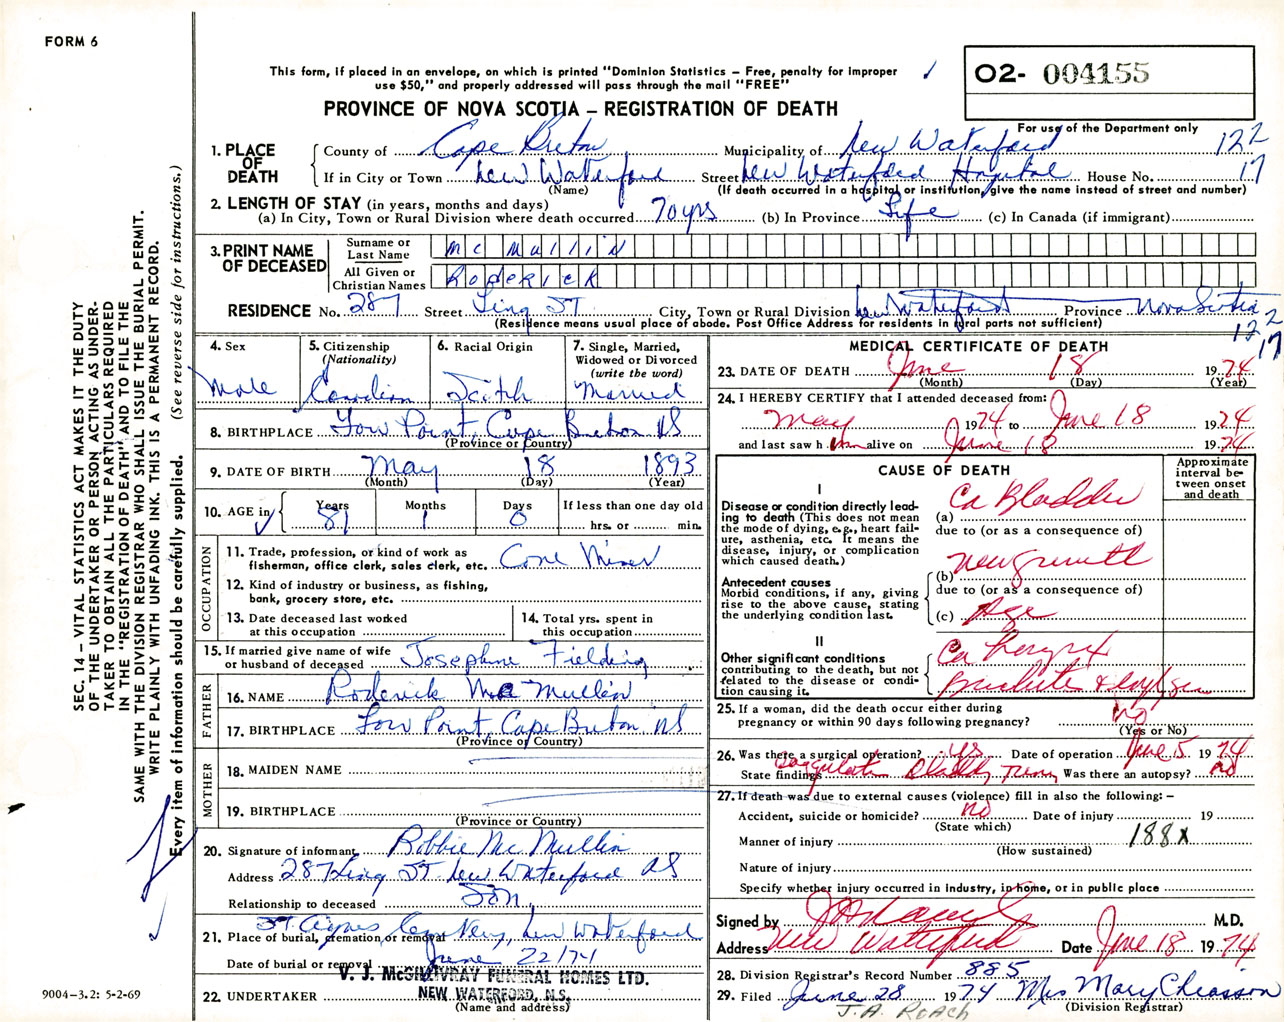 FORM 6
This form, if placed in an envelope, on which is printed "Dominion Statistics – Free, penalty for improper
use $50," and properly addressed will pass through the mail "FREE"
O2- 004155
PROVINCE OF NOVA SCOTIA – REGISTRATION OF DEATH
For use of the Department only
122
17
1. PLACE OF DEATH
County of Cape Breton Municipality of New Waterford
If in City or Town New Waterford Street New Waterford Hospital House No.
(Name) (If death occurred in a hospital or institution, give the name instead of street and number)
2. LENGTH OF STAY (in years, months and days)
(a) In City, Town or Rural Division where death occurred 70 yrs (b) In Province Life (c) In Canada (if immigrant)
3. PRINT NAME OF DECEASED
Surname or Last Name McMullin
All Given or Christian Names Roderick
RESIDENCE No. 287 Street Ling St City, Town or Rural Division New Waterford Province Nova Scotia
(Residence means usual place of abode. Post Office Address for residents in rural parts not sufficient)
122
17
4. Sex
Male
5. Citizenship
(Nationality)
Canadian
6. Racial Origin
Scotch
7. Single, Married,
Widowed or Divorced
(write the word)
Married
8. BIRTHPLACE Low Point, Cape Breton NS
(Province or Country)
9. DATE OF BIRTH May 18 1893
(Month) (Day) (Year)
10. AGE in
Years Months Days If less than one day old
81 1 0 hrs. or min.
OCCUPATION
11. Trade, profession, or kind of work as
fisherman, office clerk, sales clerk, etc. Coal Miner
12. Kind of industry or business, as fishing,
bank, grocery store, etc.
13. Date deceased last worked
at this occupation
14. Total yrs. spent in
this occupation
15. If married give name of wife
or husband of deceased Josephine Fielding
FATHER
16. NAME Roderick McMullin
17. BIRTHPLACE Low Point, Cape Breton NS
(Province or Country)
MOTHER
18. MAIDEN NAME
19. BIRTHPLACE
(Province or Country)
20. Signature of informant Robbie McMullin
Address 287 Ling St. New Waterford NS
Relationship to deceased Son
21. Place of burial, cremation or removal St. Agnes Cemetery, New Waterford
Date of burial or removal June 22/74
22. UNDERTAKER V. J. McGILLIVRAY FUNERAL HOMES LTD.
NEW WATERFORD, N.S.
(Name and address)
MEDICAL CERTIFICATE OF DEATH
23. DATE OF DEATH June 18 1974
(Month) (Day) (Year)
24. I HEREBY CERTIFY that I attended deceased from:
May 1974 to June 18 1974
and last saw him alive on June 18 1974
CAUSE OF DEATH
Approximate
interval be-
tween onset
and death
I
Disease or condition directly lead-
ing to death (This does not mean
the mode of dying, e.g., heart fail-
ure, asthenia, etc. It means the
disease, injury, or complication
which caused death.)
(a) Ca Bladder
due to (or as a consequence of)
Antecedent causes
Morbid conditions, if any, giving
rise to the above cause, stating
the underlying condition last.
(b) New growth
due to (or as a consequence of)
(c) Age
II
Other significant conditions
contributing to the death, but not
related to the disease or condi-
tion causing it.
Ca Larynx
25. If a woman, did the death occur either during
pregnancy or within 90 days following pregnancy? no
(Yes or No)
26. Was there a surgical operation? yes Date of operation June 5 1974
State findings Coagulation Bladder Tumor Was there an autopsy? no
27. If death was due to external causes (violence) fill in also the following: –
Accident, suicide or homicide? no Date of injury 19
(State which)
Manner of injury 188X
(How sustained)
Nature of injury
Specify whether injury occurred in industry, in home, or in public place
Signed by M.D.
Address New Waterford Date June 18 1974
28. Division Registrar's Record Number 885
29. Filed June 28 1974 Mrs Mary Chiasson
(Division Registrar)
J.A. ROACH
SEC. 14 – VITAL STATISTICS ACT MAKES IT THE DUTY
OF THE UNDERTAKER OR PERSON ACTING AS UNDER-
TAKER TO OBTAIN ALL THE PARTICULARS REQUIRED
IN THE "REGISTRATION OF DEATH" AND TO FILE THE
SAME WITH THE DIVISION REGISTRAR WHO SHALL ISSUE THE BURIAL PERMIT.
WRITE PLAINLY WITH UNFADING INK. THIS IS A PERMANENT RECORD.
Every item of information should be carefully supplied. (See reverse side for instructions.)
9004-3.2: 5-2-69